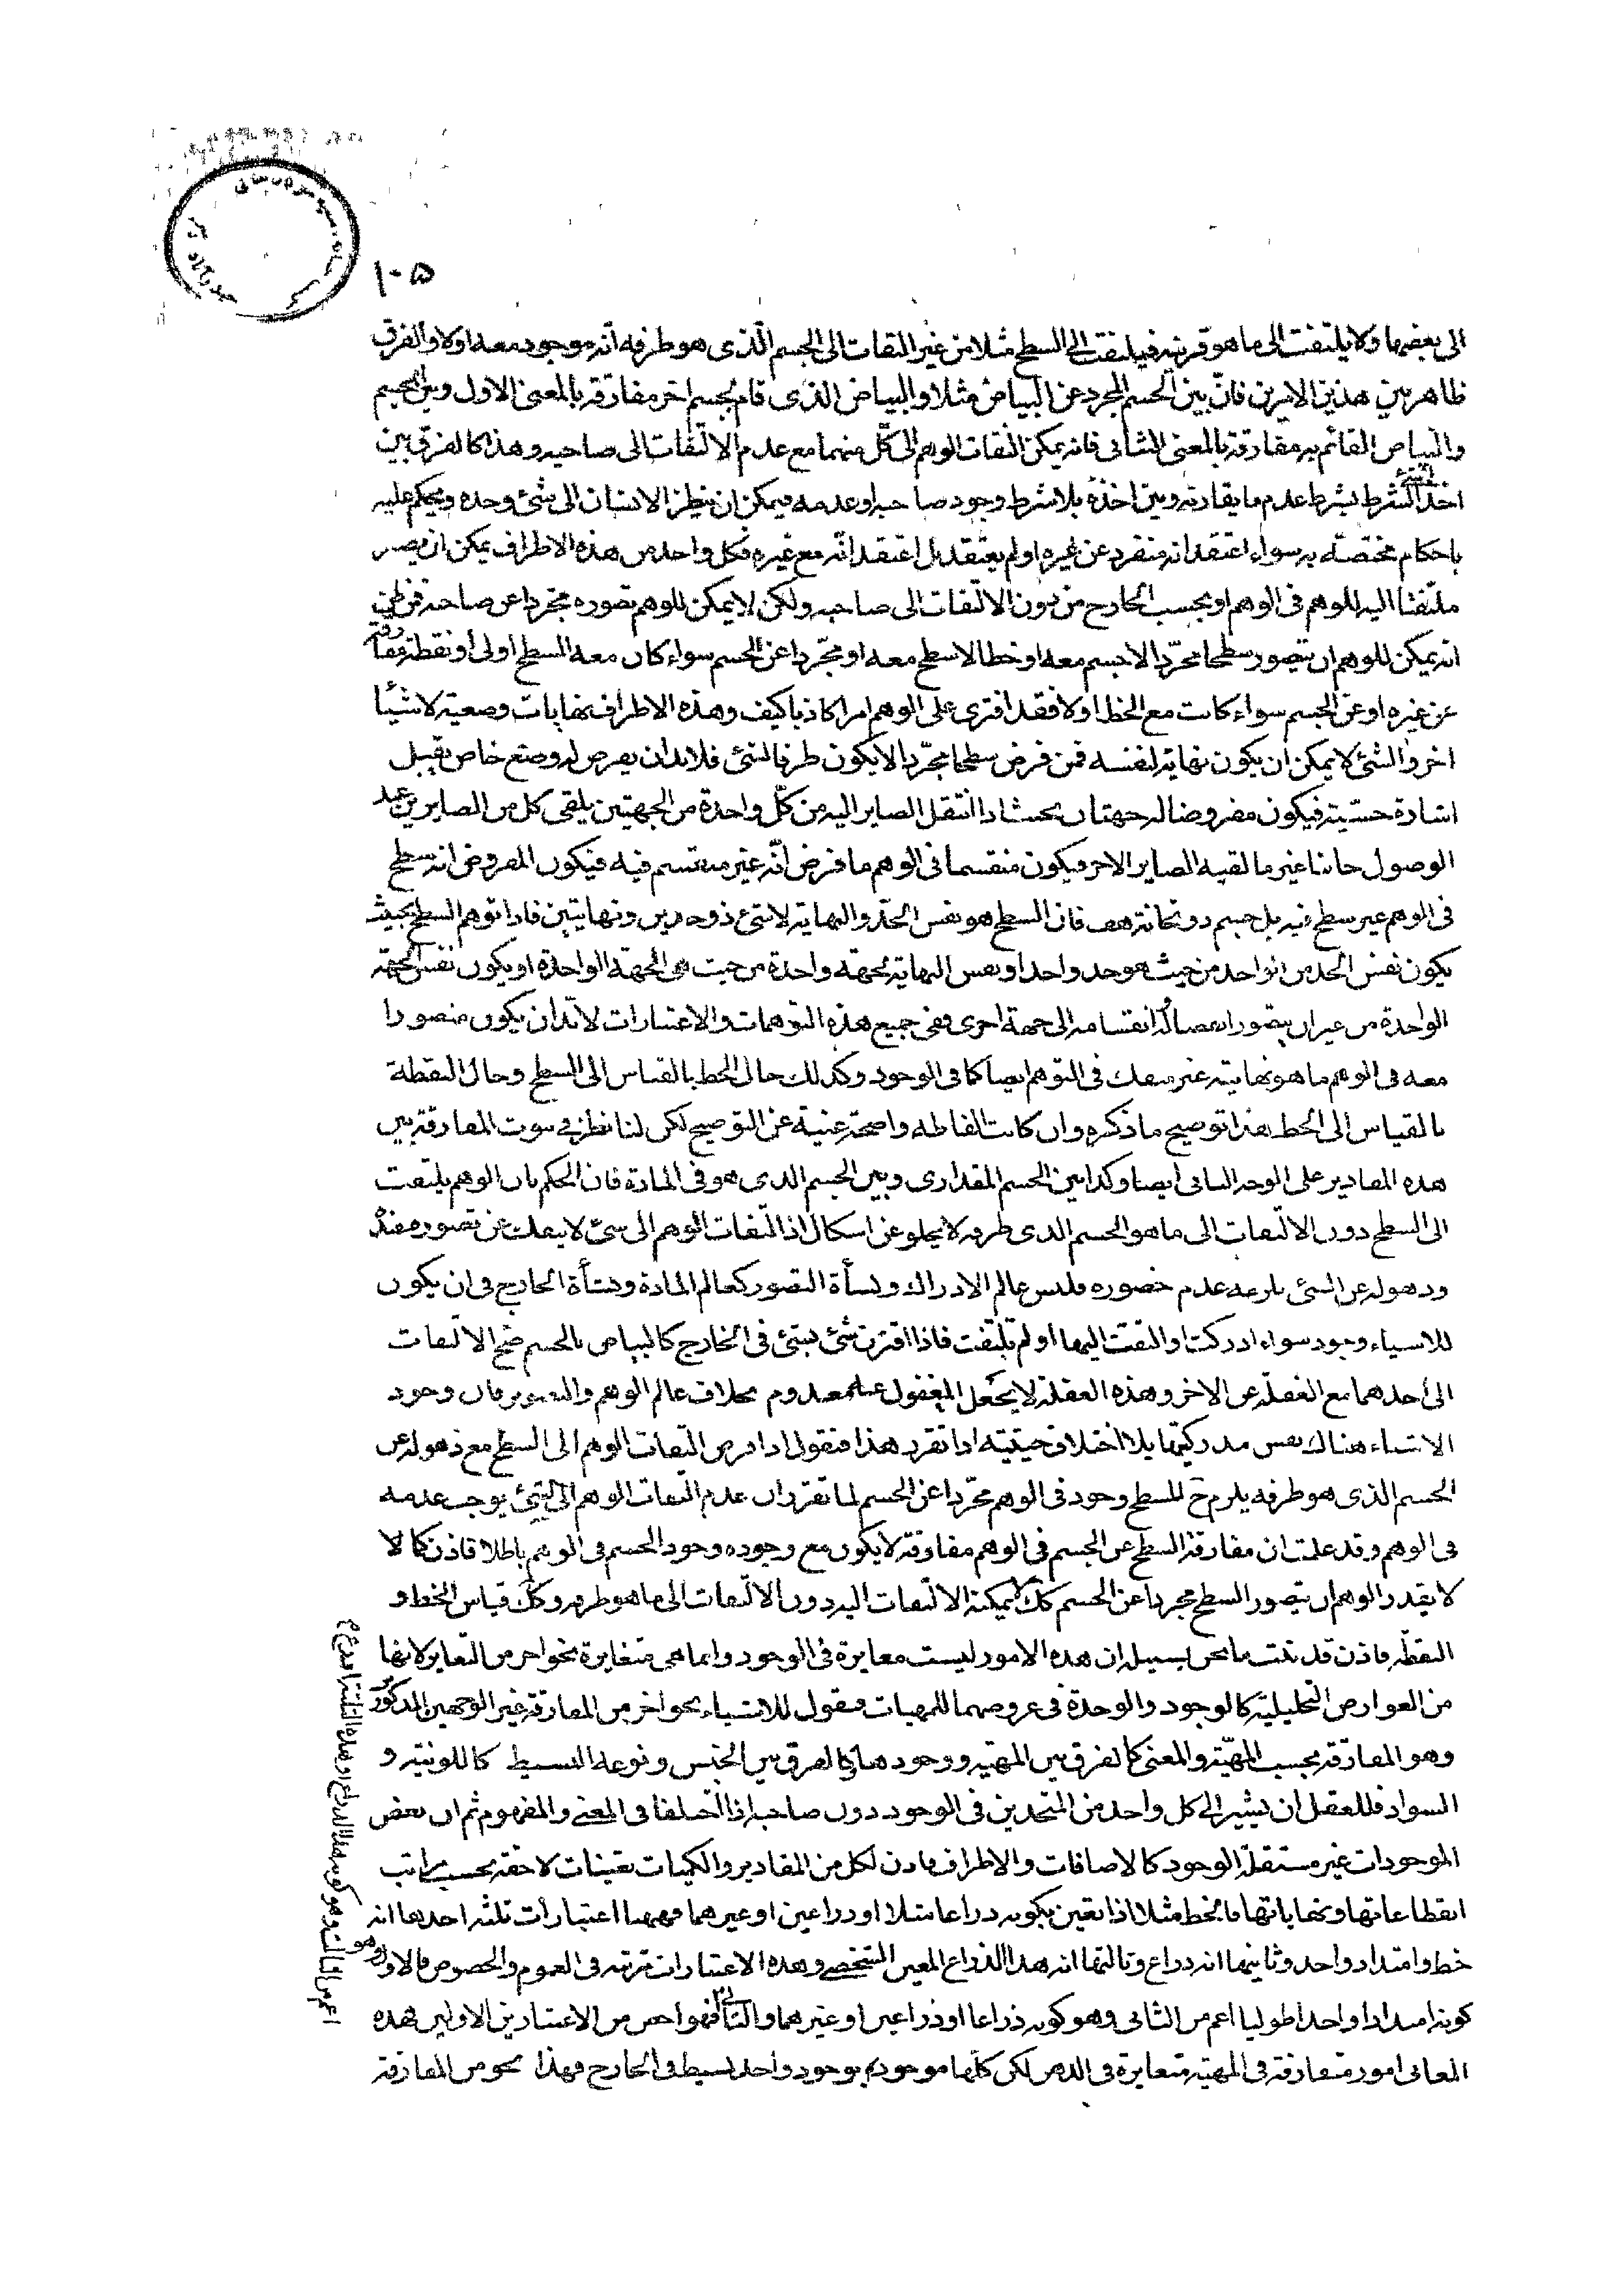 ١٠٥
الى بعضها ولا يلتفت الى ما هو قرينه فيلتفت الى السطح مثلا من غير التفات الى الجسم الّذى هو طرفه أنّه موجود معه اولا والفرق
ظاهر بين هذين الامرين فانّ بين الجسم المجرد عن البياض مثلا والبياض الذى قام بجسم اخر مفارقة بالمعنى الاول وبين الجسم
والبياض القائم به مفارقة بالمعنى الثانى فانه يمكن التفات الوهم الى كلّ منهما مع عدم الالتفات الى صاحبه وهذا كالفرق بين
اخذ الشئ بشرط عدم ما يقارنه وبين اخذه بلا شرط وجود صاحبه او عدمه فيمكن ان ينظر الانسان الى شئ وحده ويحكم عليه
باحكام مختصّة به سواء اعتقد انه منفرد عن غيره او لم يعتقد بل اعتقد انّه مع غيره فكل واحد من هذه الاطراف يمكن ان يصير
ملتفتا اليه للوهم فى الوهم او بحسب الخارج من دون الالتفات الى صاحبه ولكن لا يمكن للوهم تصوره مجردا عن صاحبه فمن ظن
انه يمكن للوهم ان يتصور سطحا مجرّدا لا جسم معه او خطا لا سطح معه او مجرّدا عن الجسم سواء كان معه السطح اولى او نقطة مفارقة
عن غيره او عن الجسم سواء كانت مع الخط اولا فقد افترى على الوهم امرا كاذبا كيف وهذه الاطراف نهايات وضعية لاشيأ
اخر والشئ لا يمكن ان يكون نهاية لنفسه فمن فرض سطحا مجرّدا لا يكون طرفا لشئ فلا بد ان يعرض له وضع خاص يقبل
اشارة حسّية فيكون مفروضا له جهتان بحيث اذا انتقل الصاير اليه من كلّ واحدة من الجهتين يلقى كل من الصايرين عند
الوصول جانبا غير ما لقيه الصاير الاخر فيكون منقسما فى الوهم ما فرض انّه غير منقسم فيه فيكون المفروض انه سطح
فى الوهم غير سطح فيه بل جسم ذو ثخانة هف فان السطح هو نفس الحدّ والنهاية لا شئ ذو حدين ونهايتين فاذا توهم السطح بحيث
يكون نفس الحد من الواحد من حيث هو حد واحد او نفس النهاية بجهة واحدة من حيث هى الجهة الواحدة او يكون نفس الجهة
الواحدة من غير ان يتصور انفصاله انقسامه الى جهة اخرى ففى جميع هذه التوهمات والاعتبارات لا بدّ ان يكون متصورا
معه فى الوهم ما هو نهايته غير منفك فى التوهم ايضا كما فى الوجود وكذلك حال الخط بالقياس الى السطح وحال النقطة
بالقياس الى الخط هذا توضيح ما ذكره وان كانت الفاظه واضحة غنية عن التوضيح لكن لنا نظر فى ثبوت المفارقة بين
هذه المقادير على الوجه الثانى ايضا وكذا بين الجسم المقدارى وبين الجسم الذى هو فى المادة فان الحكم بان الوهم يلتفت
الى السطح دون الالتفات الى ما هو الجسم الذى طرفه لا يخلو عن اشكال اذا التفات الوهم الى شئ لا ينفك عن تصوره
وذهوله عن الشئ يلزمه عدم حضوره فليس عالم الادراك ونشأة التصور كعالم المادة ونشأة الخارج فى ان يكون
للاشياء وجود سواء ادركت او التفت اليها او لم تلتفت فاذا اقترن شئ بشئ فى الخارج كالبياض بالجسم صحّ الالتفات
الى أحدهما مع الغفلة عن الاخر وهذه الغفلة لا يجعل المغفول عنه معدوم بخلاف عالم الوهم والتصور فان وجود
الاشياء هناك نفس مدركيتها بلا اختلاف حيثيته اذا تقرر هذا فنقول اذا فرض التفات الوهم الى السطح مع ذهوله عن
الجسم الذى هو طرفه يلزم ح للسطح وجود فى الوهم مجرّدا عن الجسم لما تقرر ان عدم التفات الوهم الى الشئ يوجب عدمه
فى الوهم وقد علمت ان مفارقة السطح عن الجسم فى الوهم مفارقة لا يكون مع وجوده وجود الجسم فى الوهم باطلا فاذن كما لا
لا يقدر الوهم ان يتصور السطح مجردا عن الجسم كك لا يمكنه الالتفات اليه دون الالتفات الى ما هو طرفه وكك قياس الخط و
النقطه فاذن قد ثبت ما نحن بسبيله ان هذه الامور ليست مغايرة فى الوجود وانما هى متغايرة بنحو اخر من التغاير لانها
من العوارض التحليلية كالوجود والوحدة فى عروضهما للمهيات فنقول للاشياء نحو اخر من المفارقة غير الوجهين المذكورين
وهو المفارقة بحسب المهيّة والمعنى كالفرق بين المهيه ووجودها وكالفرق بين الجنس ونوعه البسيط كاللونية و
السواد فللعقل ان يشير الى كل واحد من المتحدين فى الوجود دون صاحبه اذا اختلفا فى المعنى والمفهوم ثم ان بعض
الموجودات غير مستقلة الوجود كالاضافات والاطراف فاذن لكل من المقادير والكميات تعينات لاحقة بحسب مراتب
انقطاعاتها ونهاياتها فالخط مثلا اذا تعين بكونه ذراعا مثلا او ذراعين او غيرهما فههنا اعتبارات ثلثه احدها انه
خط وامتداد واحد وثانيها انه ذراع وثالثها انه هذا الذراع المعين الشخصى وهذه الاعتبارات مترتبه فى العموم والخصوص فالاول وهو
كونه امتدادا واحدا طوليا اعم من الثانى وهو كونه ذراعا او ذراعين او غيرهما والثانى فهو اخص من الاعتبارين الاولين فهذه
المعانى امور متفارقة فى المهية متغايرة فى الذهن لكن كلها موجودة بوجود واحد بسيط فى الخارج فهذا نحو من المفارقة
اعم من الثالث وهو كونه هذا الذراع او هذه الثلثة اذرع م